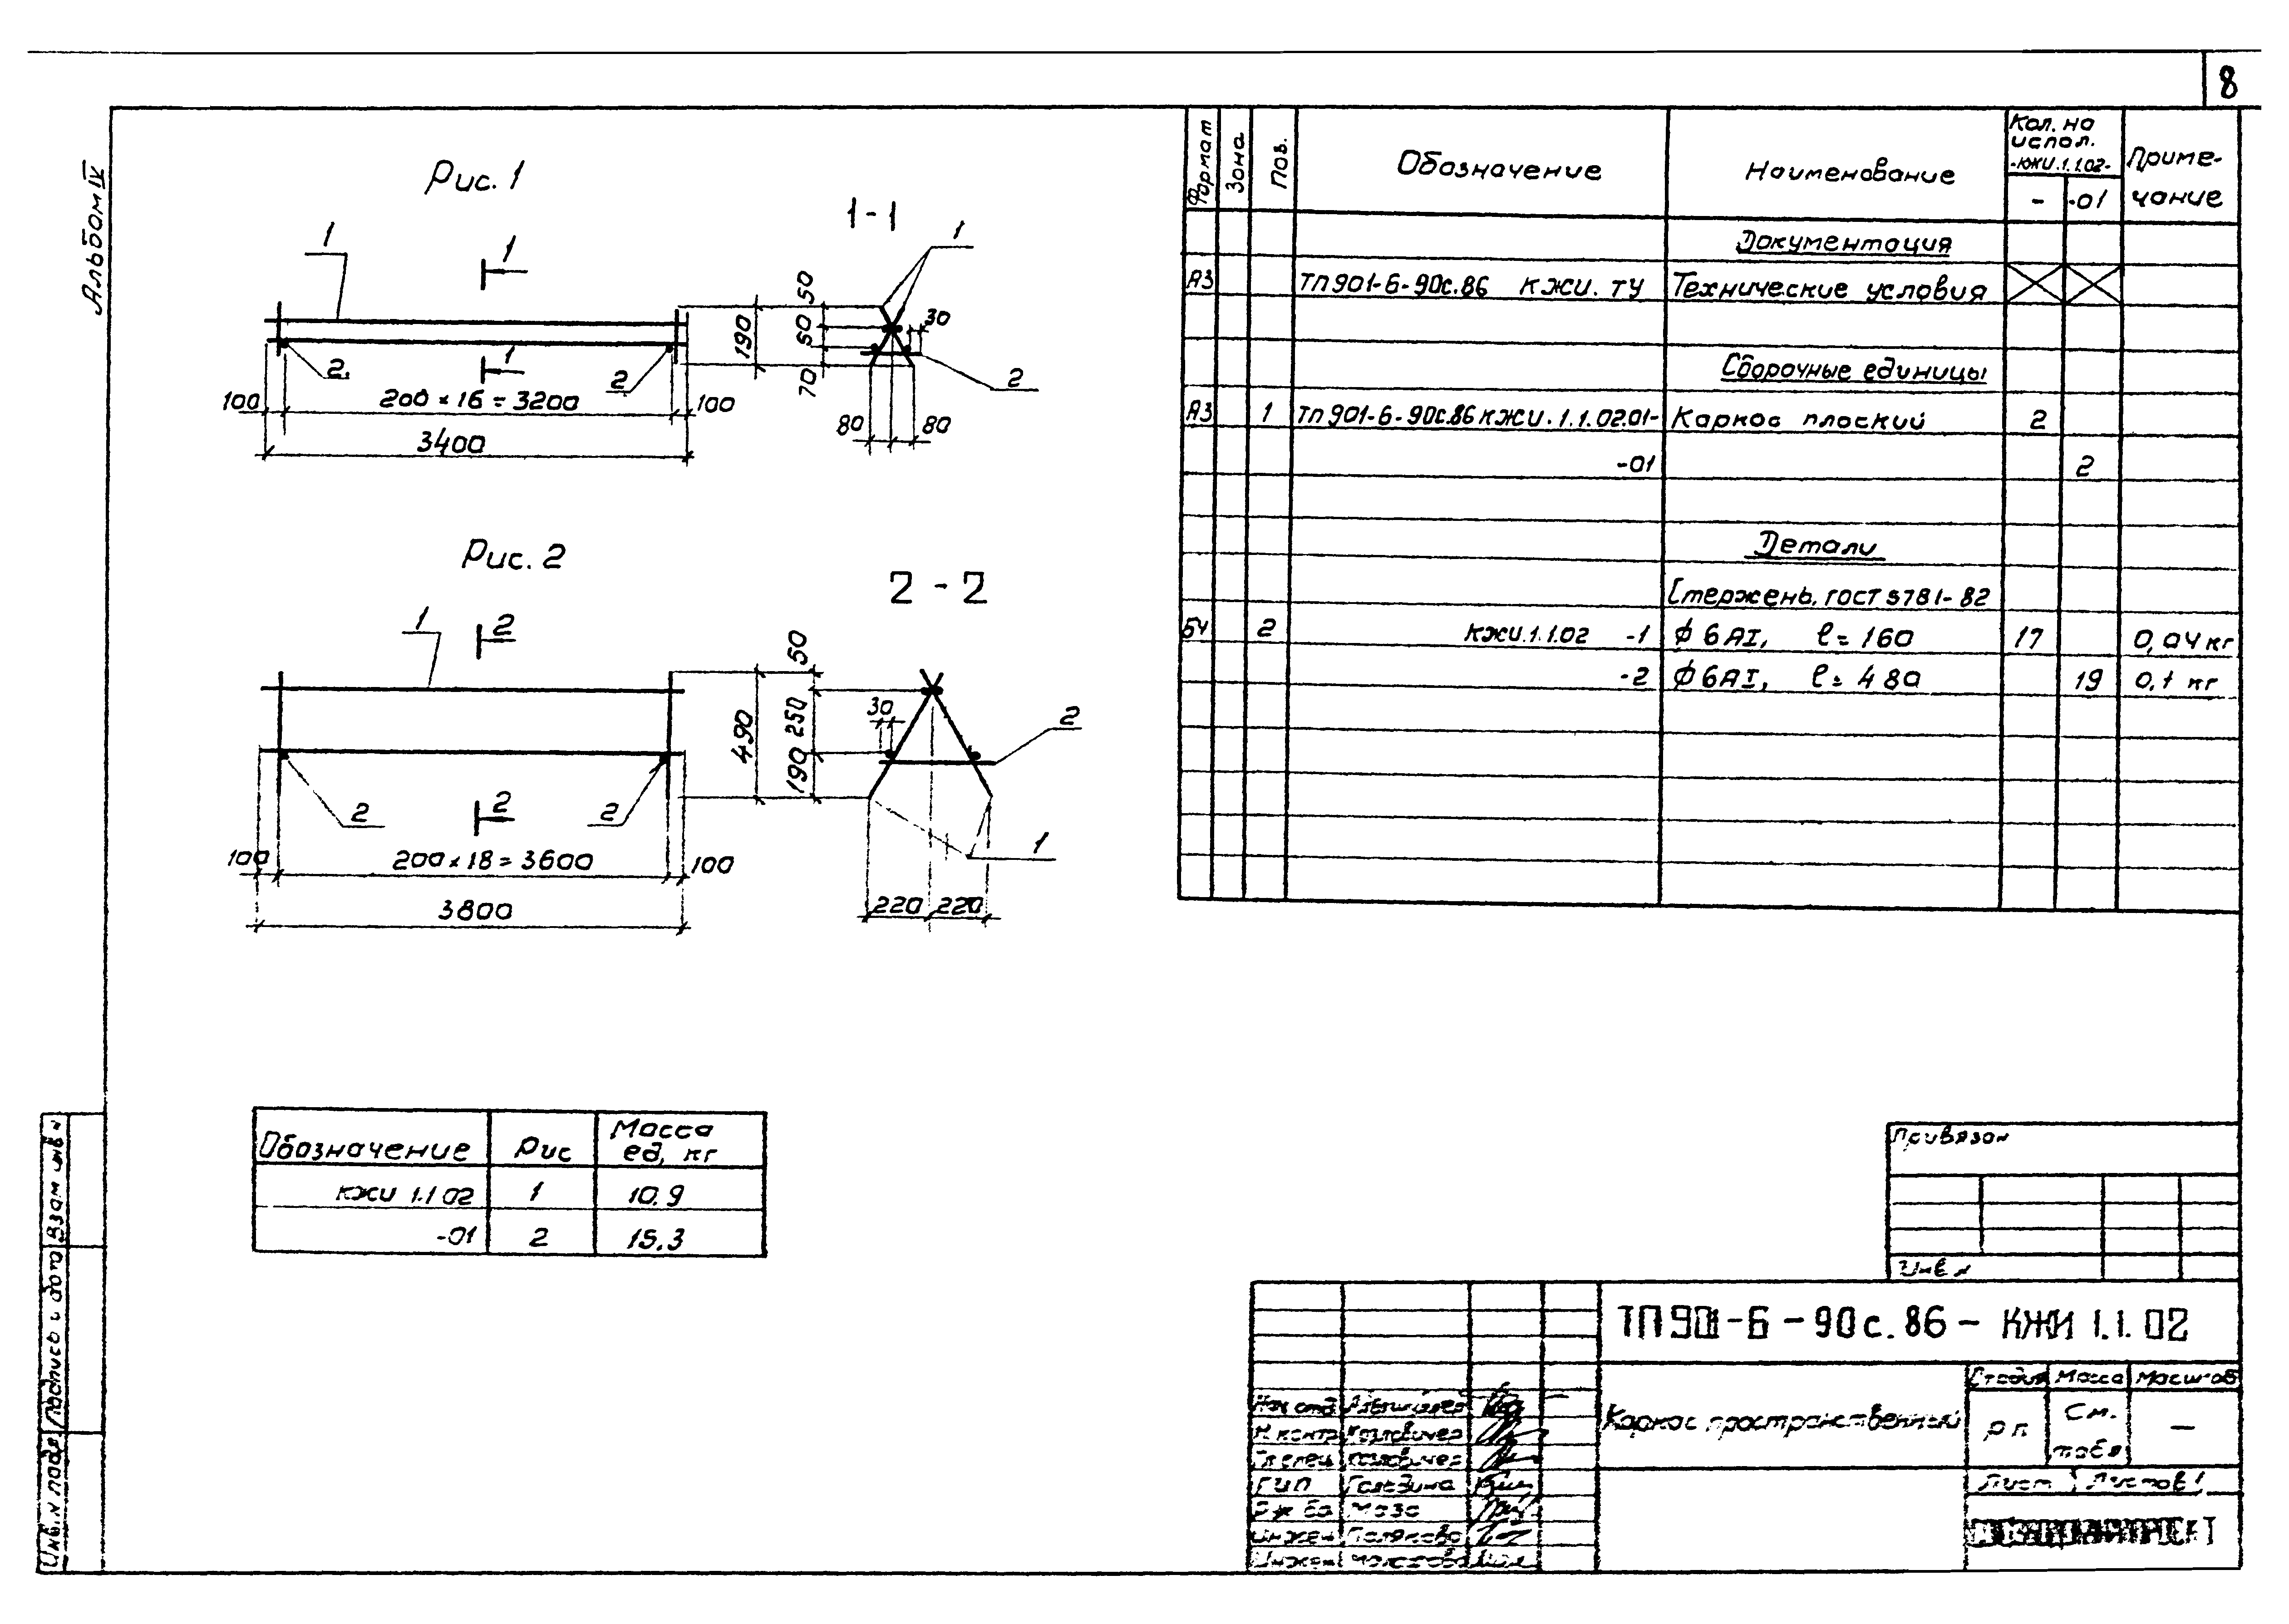 8
Альбом IV
Рис. 1
1-1
1
1
1
50
190
60
30
70
2.
1
2
2
100
200 × 16 = 3200
100
80
80
3400
Рис. 2
2 - 2
1
2
50
490
250
30
190
2
2
2
2
1
100
200 × 18 = 3600
100
220 220
3800
Формат
Зона
Поз.
Обозначение
Наименование
Кол. на испол. -КЖИ.1.1.02-
- -01
Приме-
чание
Документация
А3 ТП901-6-90с.86 КЖИ. ТУ Технические условия
Сборочные единицы
А3 1 ТП901-6-90с.86 КЖИ.1.1.02.01- Каркас плоский 2
-01 2
Детали
Стержень. ГОСТ 5781-82
БЧ 2 КЖИ.1.1.02 -1 ф 6АI, ℓ= 160 17 0,04 кг
-2 ф 6АI, ℓ= 480 19 0,1 кг
Обозначение Рис Масса ед, кг
КЖИ 1.1 02 1 10.9
-01 2 15.3
Привязан
Инв N
ТП 901-6-90с.86- КЖИ 1.1.02
Каркас пространственный
Стадия Масса Масштаб
Р п См. табл —
Лист Листов 1
Нач отд
Н контр
Гл спец
ГИП
Инжен Полякова
Инжен
Взам инв N
Подпись и дата
Инв. N подл.